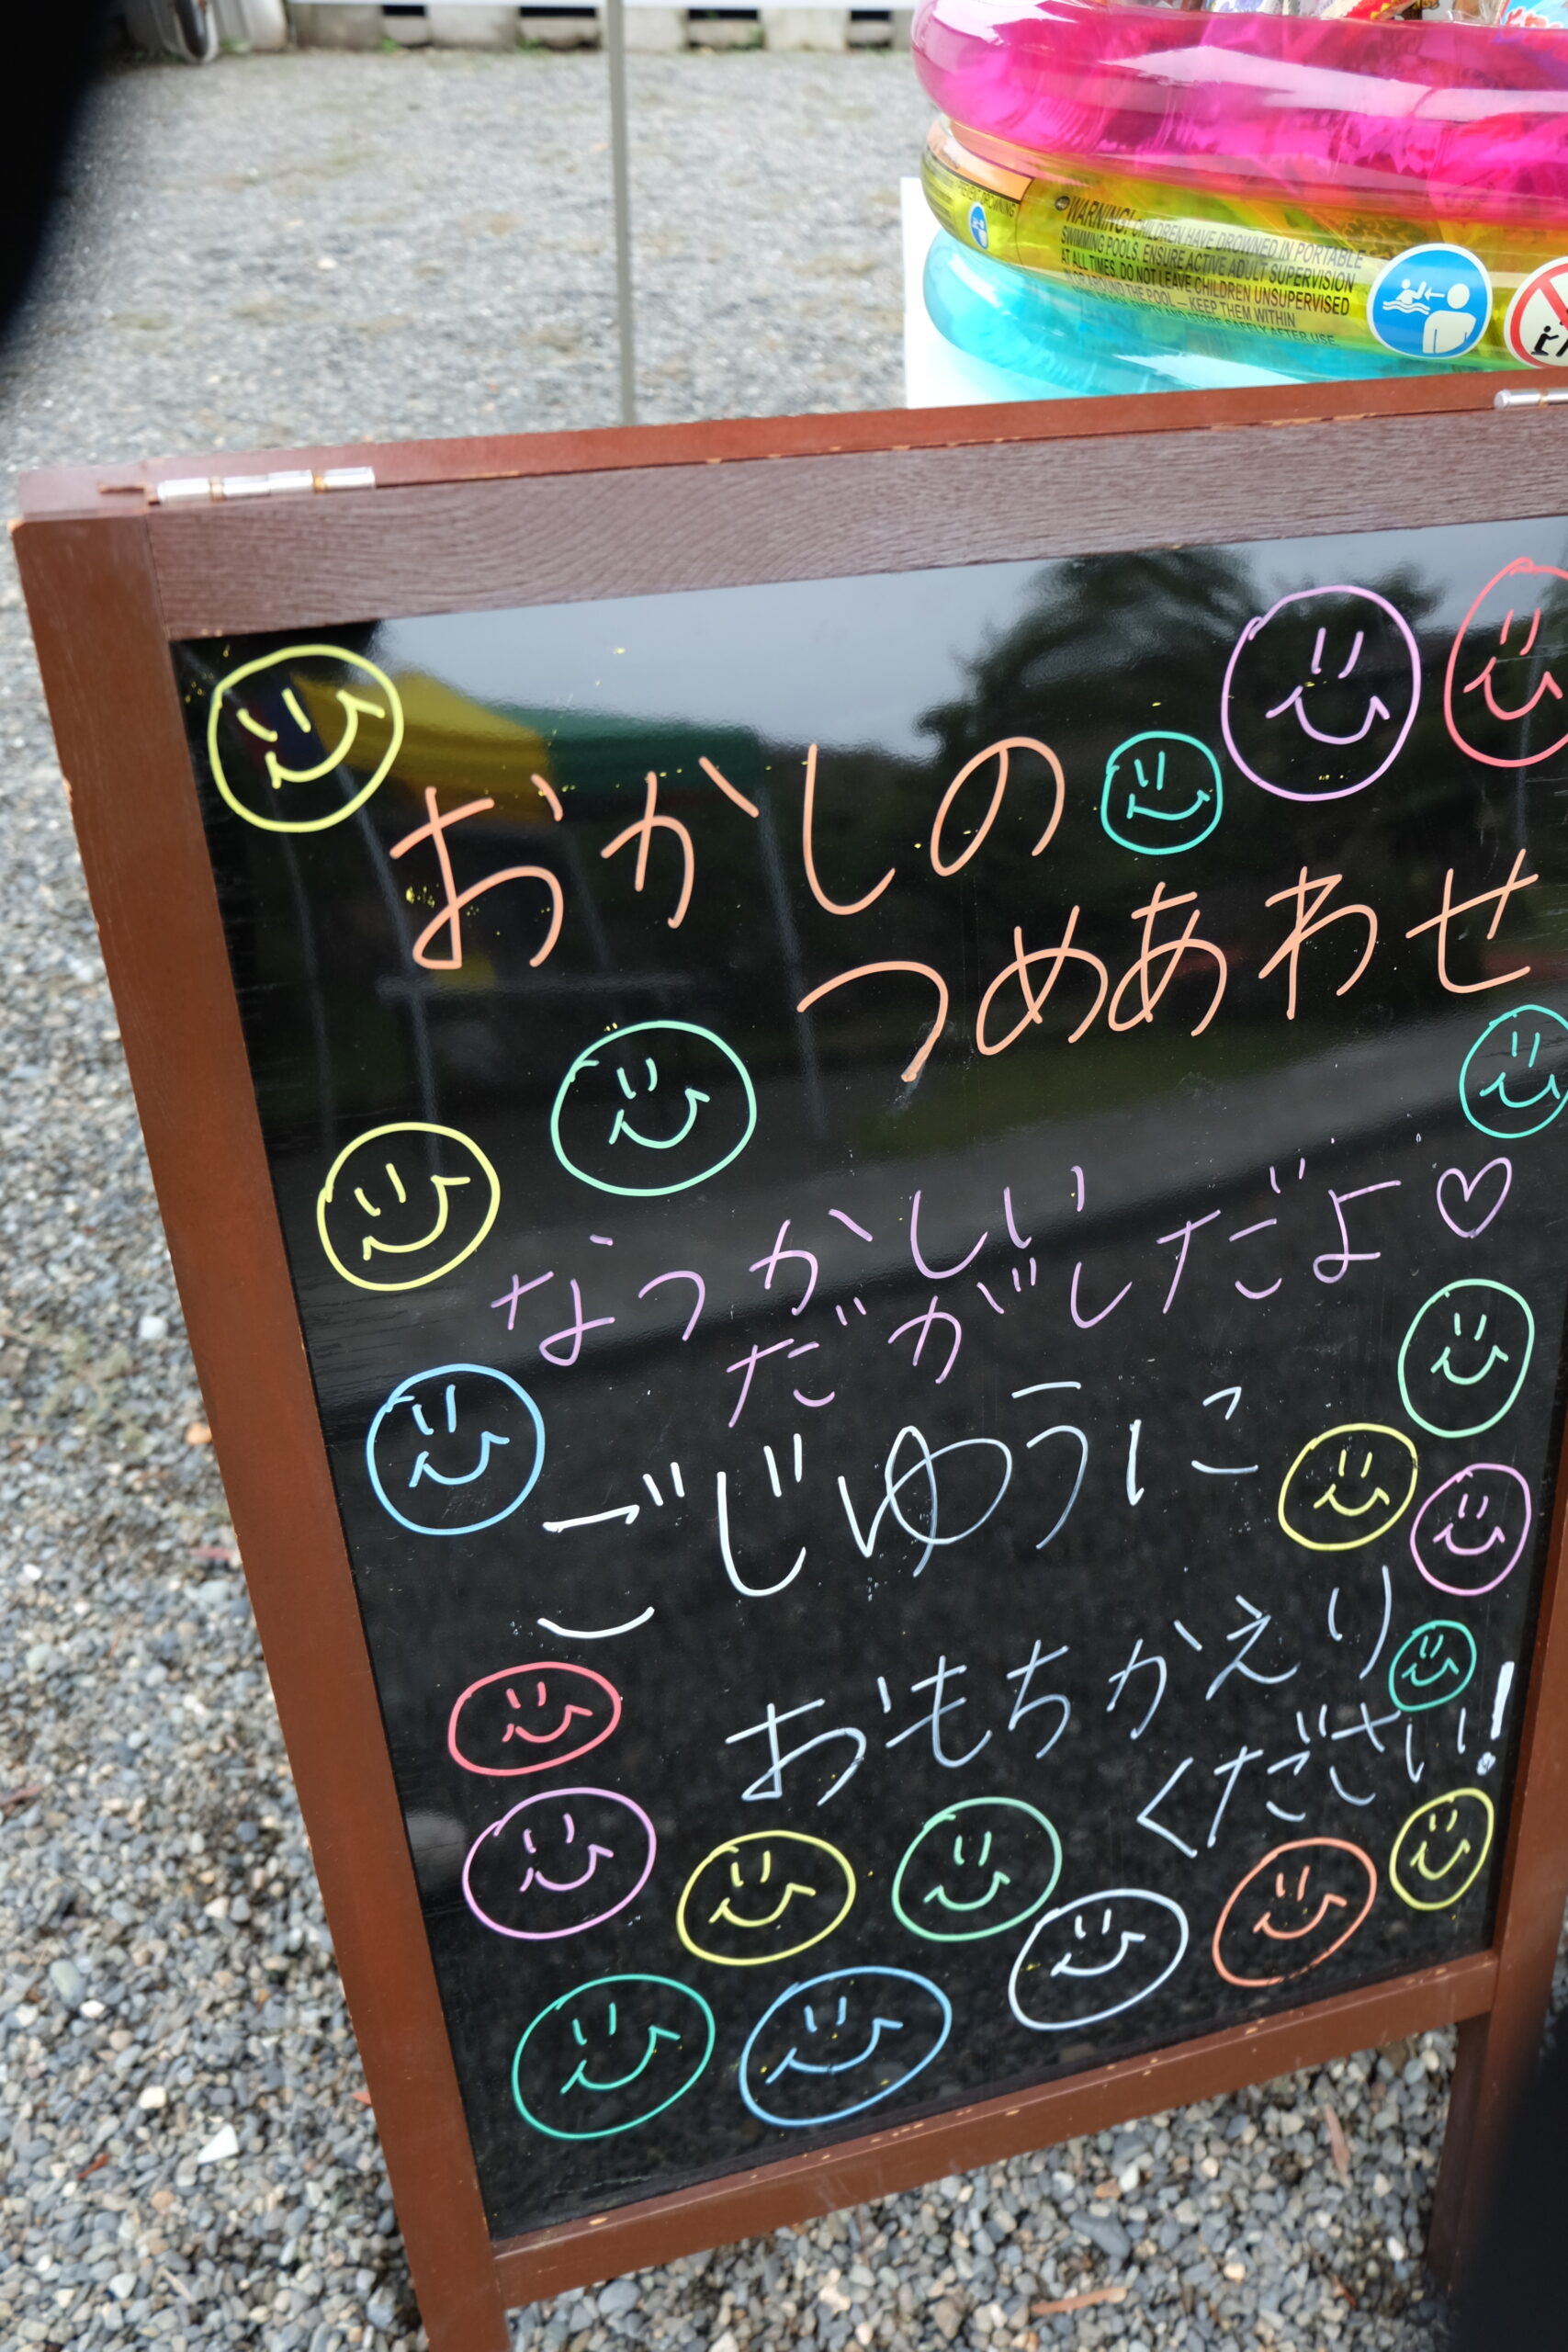 PREVENT DROWNING
WARNING! CHILDREN HAVE DROWNED IN PORTABLE
SWIMMING POOLS. ENSURE ACTIVE ADULT SUPERVISION
AT ALL TIMES. DO NOT LEAVE CHILDREN UNSUPERVISED
AROUND THE POOL — KEEP THEM WITHIN
AND STORE SAFELY AFTER USE
おかしの
つめあわせ
なつかしい
だがしだよ♡
ごじゆうに
おもちかえり
ください!